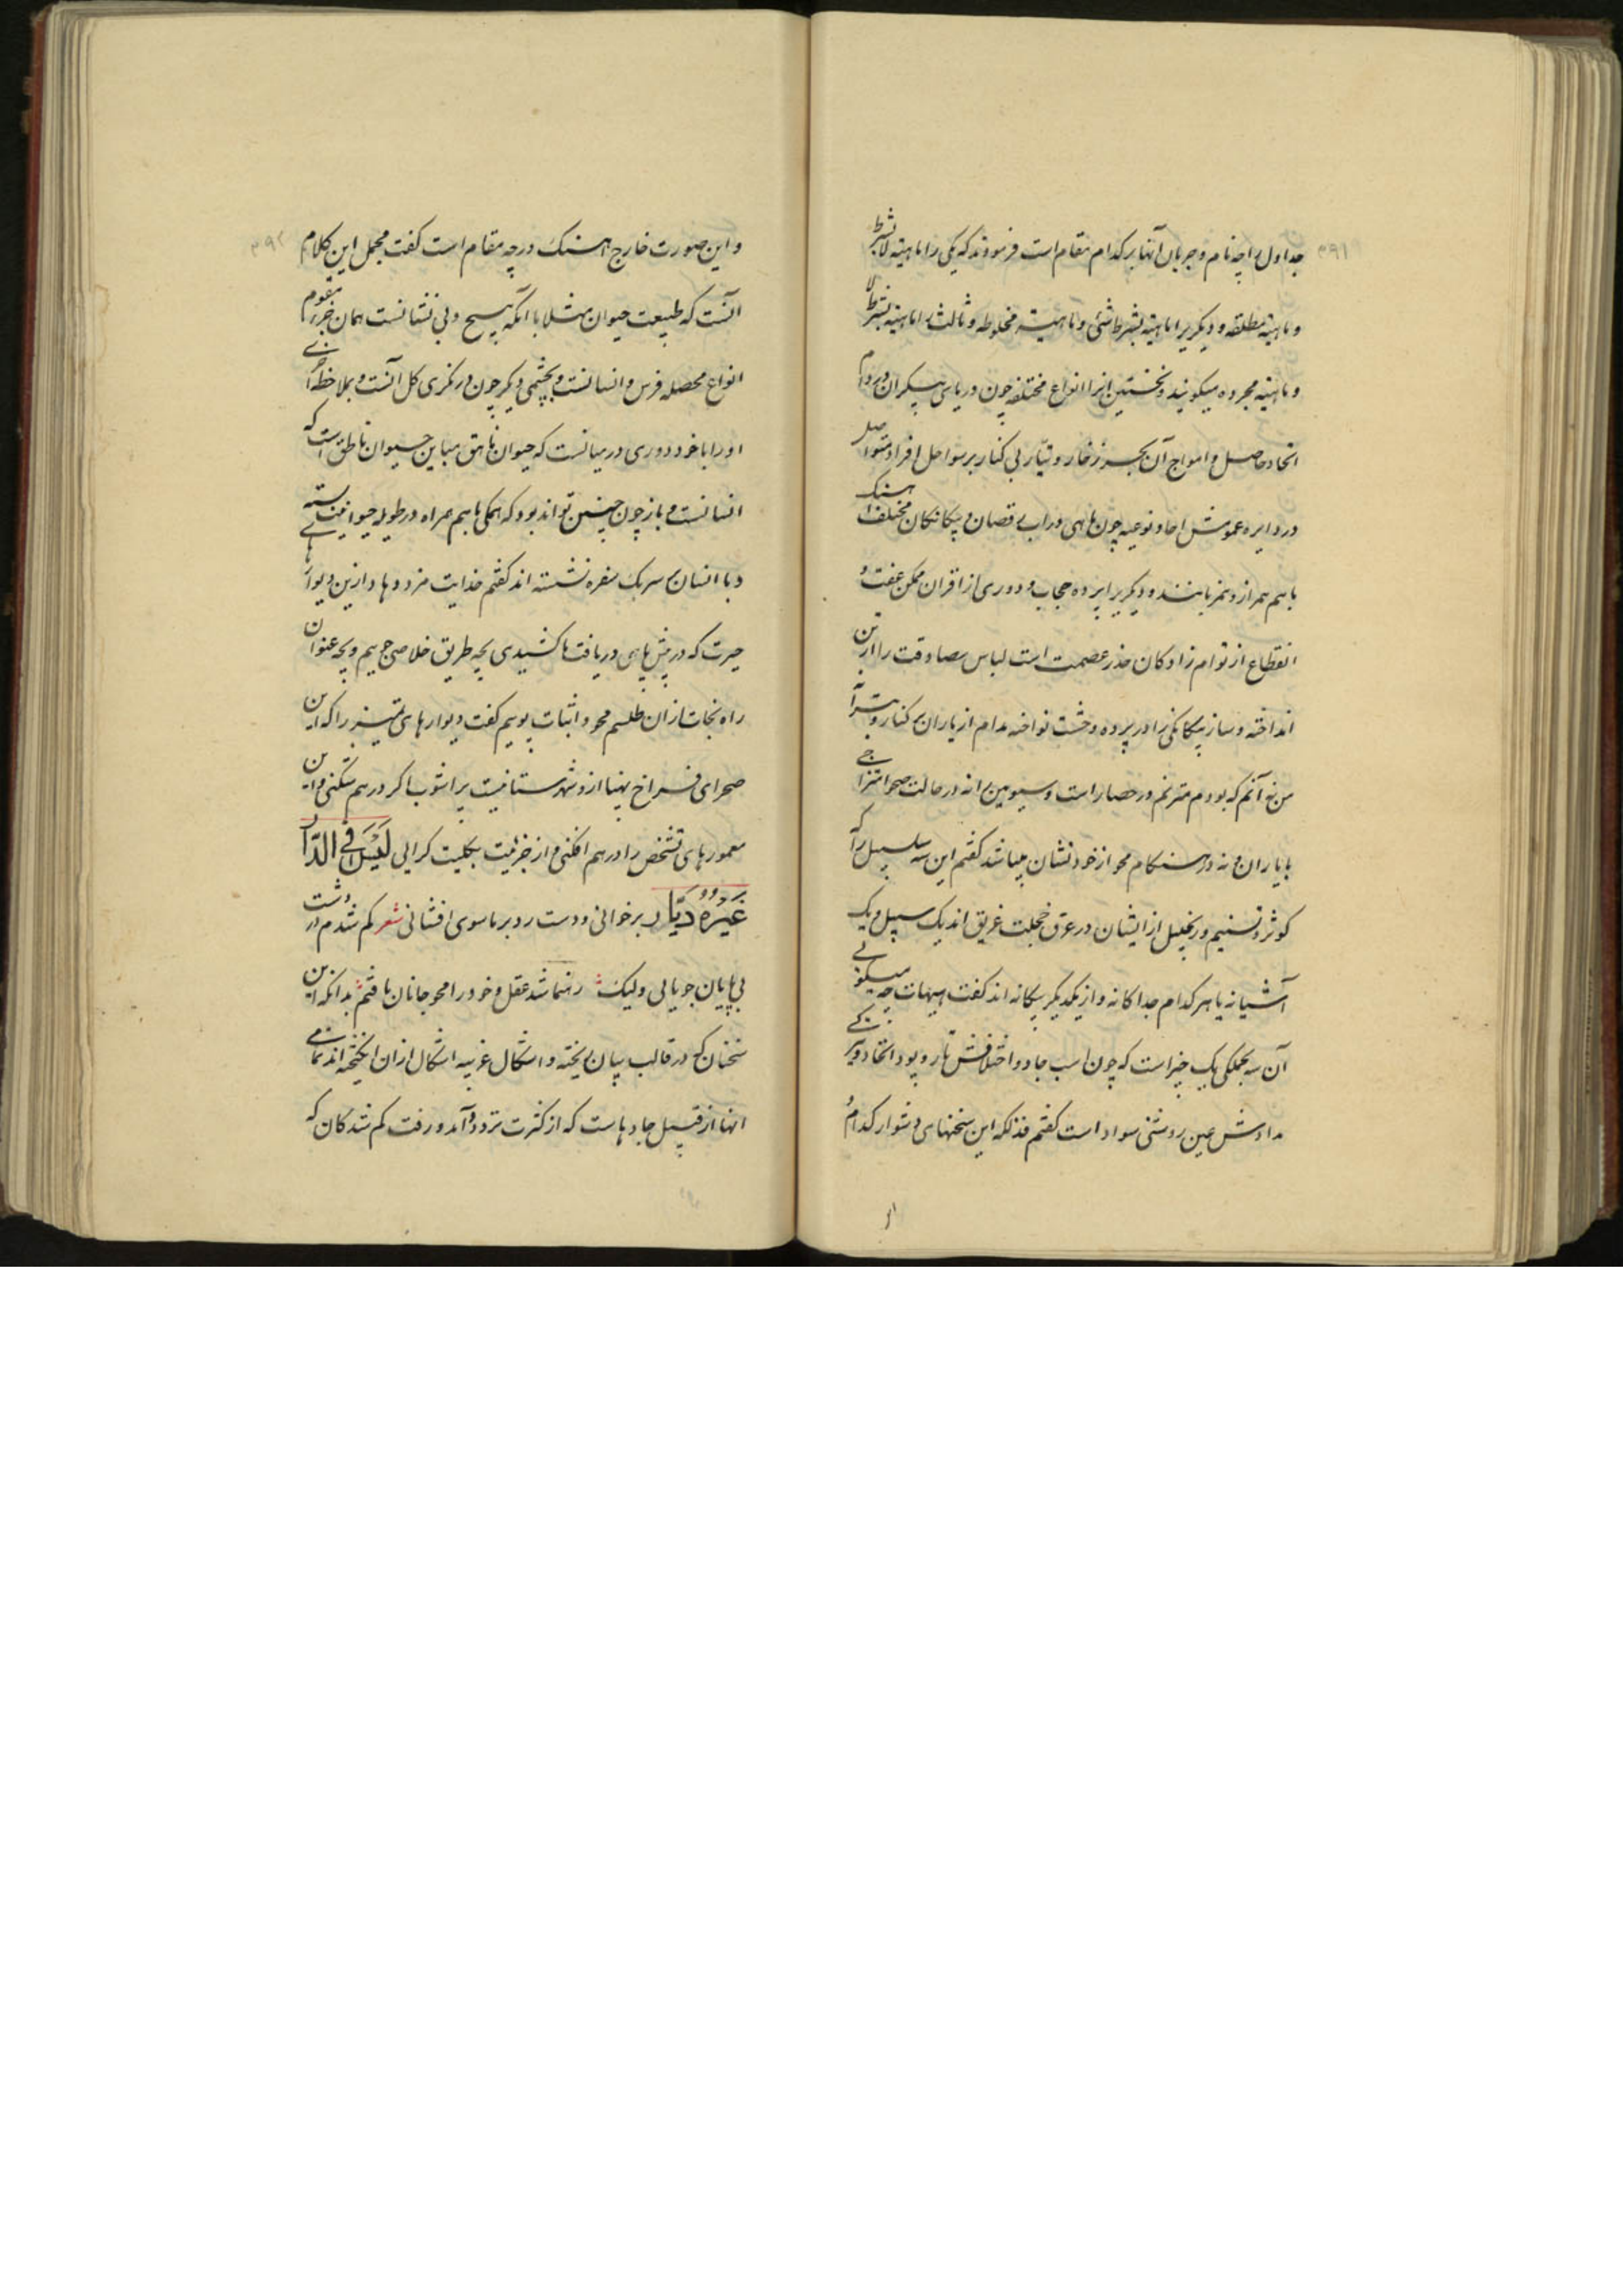 ۳۹۱
جداول را چه نام و جریان آنها بر کدام مقام است فرمودند که یکی را ماهیته لا بشرط
و ماهیته مطلقه و دیگریرا ماهیته بشرط شئ و ماهیته مخلوطه و ثالث را ماهیته بشرط لا
و ماهیته مجرده میگویند و نخستین را با انواع مختلفه چون دریای بیکران
اتحاد حاصل و امواج آن بحر زخار و تیار بی کنار بر سواحل افراد متواصل
در دایره عموش احاد نوعیه چون ماهی در آب رقصان و بیکانکان مختلف آهنگ
باهم همراز و نغمه باشند و دیگریرا پرده حجاب و دوری از اقران ممکن عفت و
انقطاع از توام زادکان خدر عصمت است لباس مصادقت را از تن
انداخته و ساز بیکانکی را در پرده وحشت نواخته مدام از یاران کنار و بترانه
من نه آنم که بودم مترنم در حصار است و سیومین را نه در حالت صحو امتزاجی
با یاران و نه در هنگام محو از خود نشان میباشد گفتم این سه سلسبیل را که
کوثر و تسنیم و زنجبیل از ایشان در عرق خجلت غریق اند یک سبیل و یک
آشیانه یا هر کدام جداکانه و از یکدیگر بیکانه اند گفت هیهات چه میگوئی
آن سه بجملگی یک چیز است که چون اسب جادو اختلافش تار و پود اتحاد و تیرگی
مدادش عین روشنی سواد است گفتم فذلکه این سخنهای دشوار کدام
۳۹۲
و این صورت خارج آهنگ در چه مقام است گفت مجمل این کلام
آنست که طبیعت حیوان مثلا با آنکه هیچ و بی نشانست همان جزء مقوم
انواع محصله فرس و انسانست و بچشمی دیگر چون درنگری کل آنست و بملاحظه
او را با خود دوری در میانست که حیوان ناهق مباین حیوان ناطق است که
انسانست و باز چون چنین تواند بود که همگی باهم همراه در طویله حیوانیت بسته
و با انسان بر سر یک سفره نشسته اند گفتم خدایت مزد دهاد ازین دیوارهای
حیرت که در پیش پای دریافت ما کشیدی بچه طریق خلاصی جوییم و بچه عنوان
راه نجات از آن طلسم محو و اثبات پوییم گفت دیوارهای تمییز را که این
صحرای فراخ پهنا ازو شهرستانیست پر آشوب اگر در هم شکنی و این
معمورهای تشخص را در هم افکنی و از جزئیت بکلیت گرایی لَیْسَ فِی الدّار
غَیْرُهُ دَیّار برخوانی و دست رد بر ماسوی افشانی شعر گم شدم در دشت
بی پایان جویایی ولیک رهنما شد عقل و خود را محو جانان یافتم بدانکه این
سخنان که در قالب بیان ریخته و اشکال غریبه اشکال از آن انگیخته اند تمامی
آنها از قبیل جادهاست که از کثرت تردد و آمد و رفت گم شدگان که